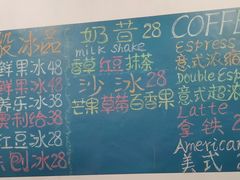 冰品
鲜果冰48
鲜果冰48
养乐冰38
奥利给38
红豆冰28
刨冰28
奶昔28
milk shake
香草 红豆 抹茶
沙冰28
芒果 草莓 百香果
COFFE
Espress
意式浓缩
Double Esp
意式超浓
Latte
拿铁 2
American
美式 2